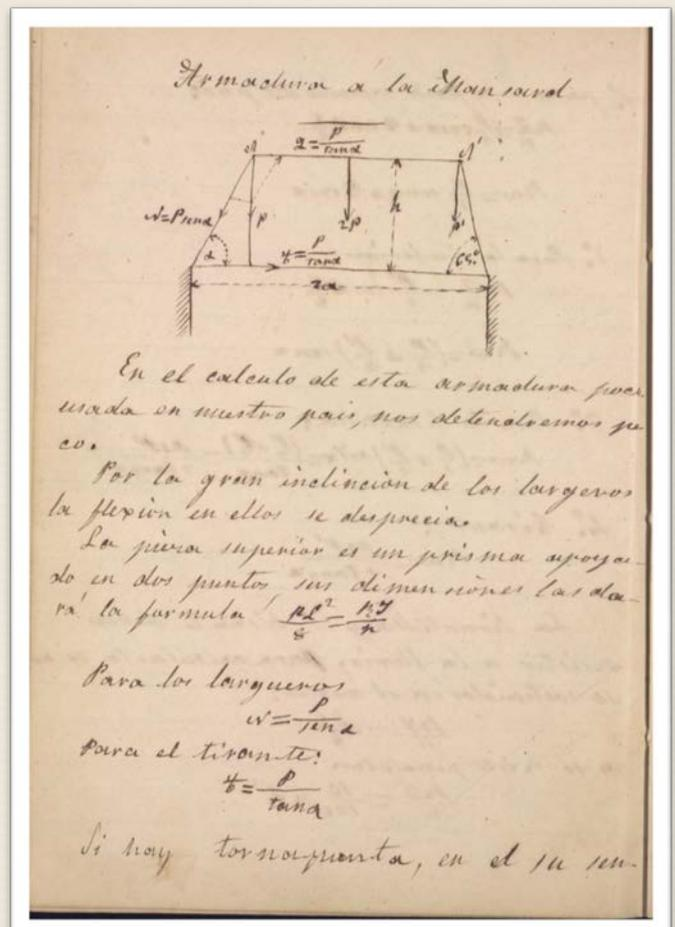 Armadura á la Mansard
Q = P / tan α
A A'
N = P sen α
P 2P h P'
t = P / tan α
α 65°
2a
En el calculo de esta armadura poca
usada en nuestro pais, nos detendremos po
co.
Por la gran inclincion de los largeros
la flexion en ellos se desprecia.
La pieza superior es un prisma apoya-
do en dos puntos, sus dimensiones las da-
rá la formula pL² / 8 = RI / n
Para los largueros
N = P / sen α
Para el tirante:
t = P / tan α
Si hay tornapunta, en el su sen-